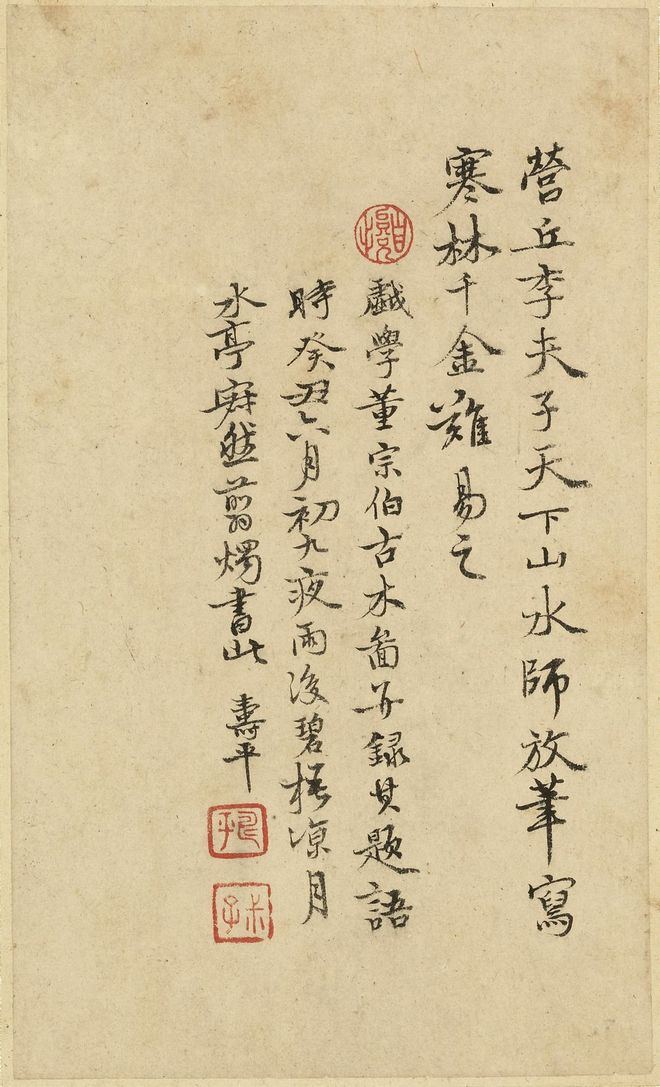 營丘李夫子天下山水師放筆寫
寒林千金難易之
戲學董宗伯古木啚并錄其題語
時癸丑六月初九夜雨後碧梧涼月
水亭寂然翦燭書此 壽平